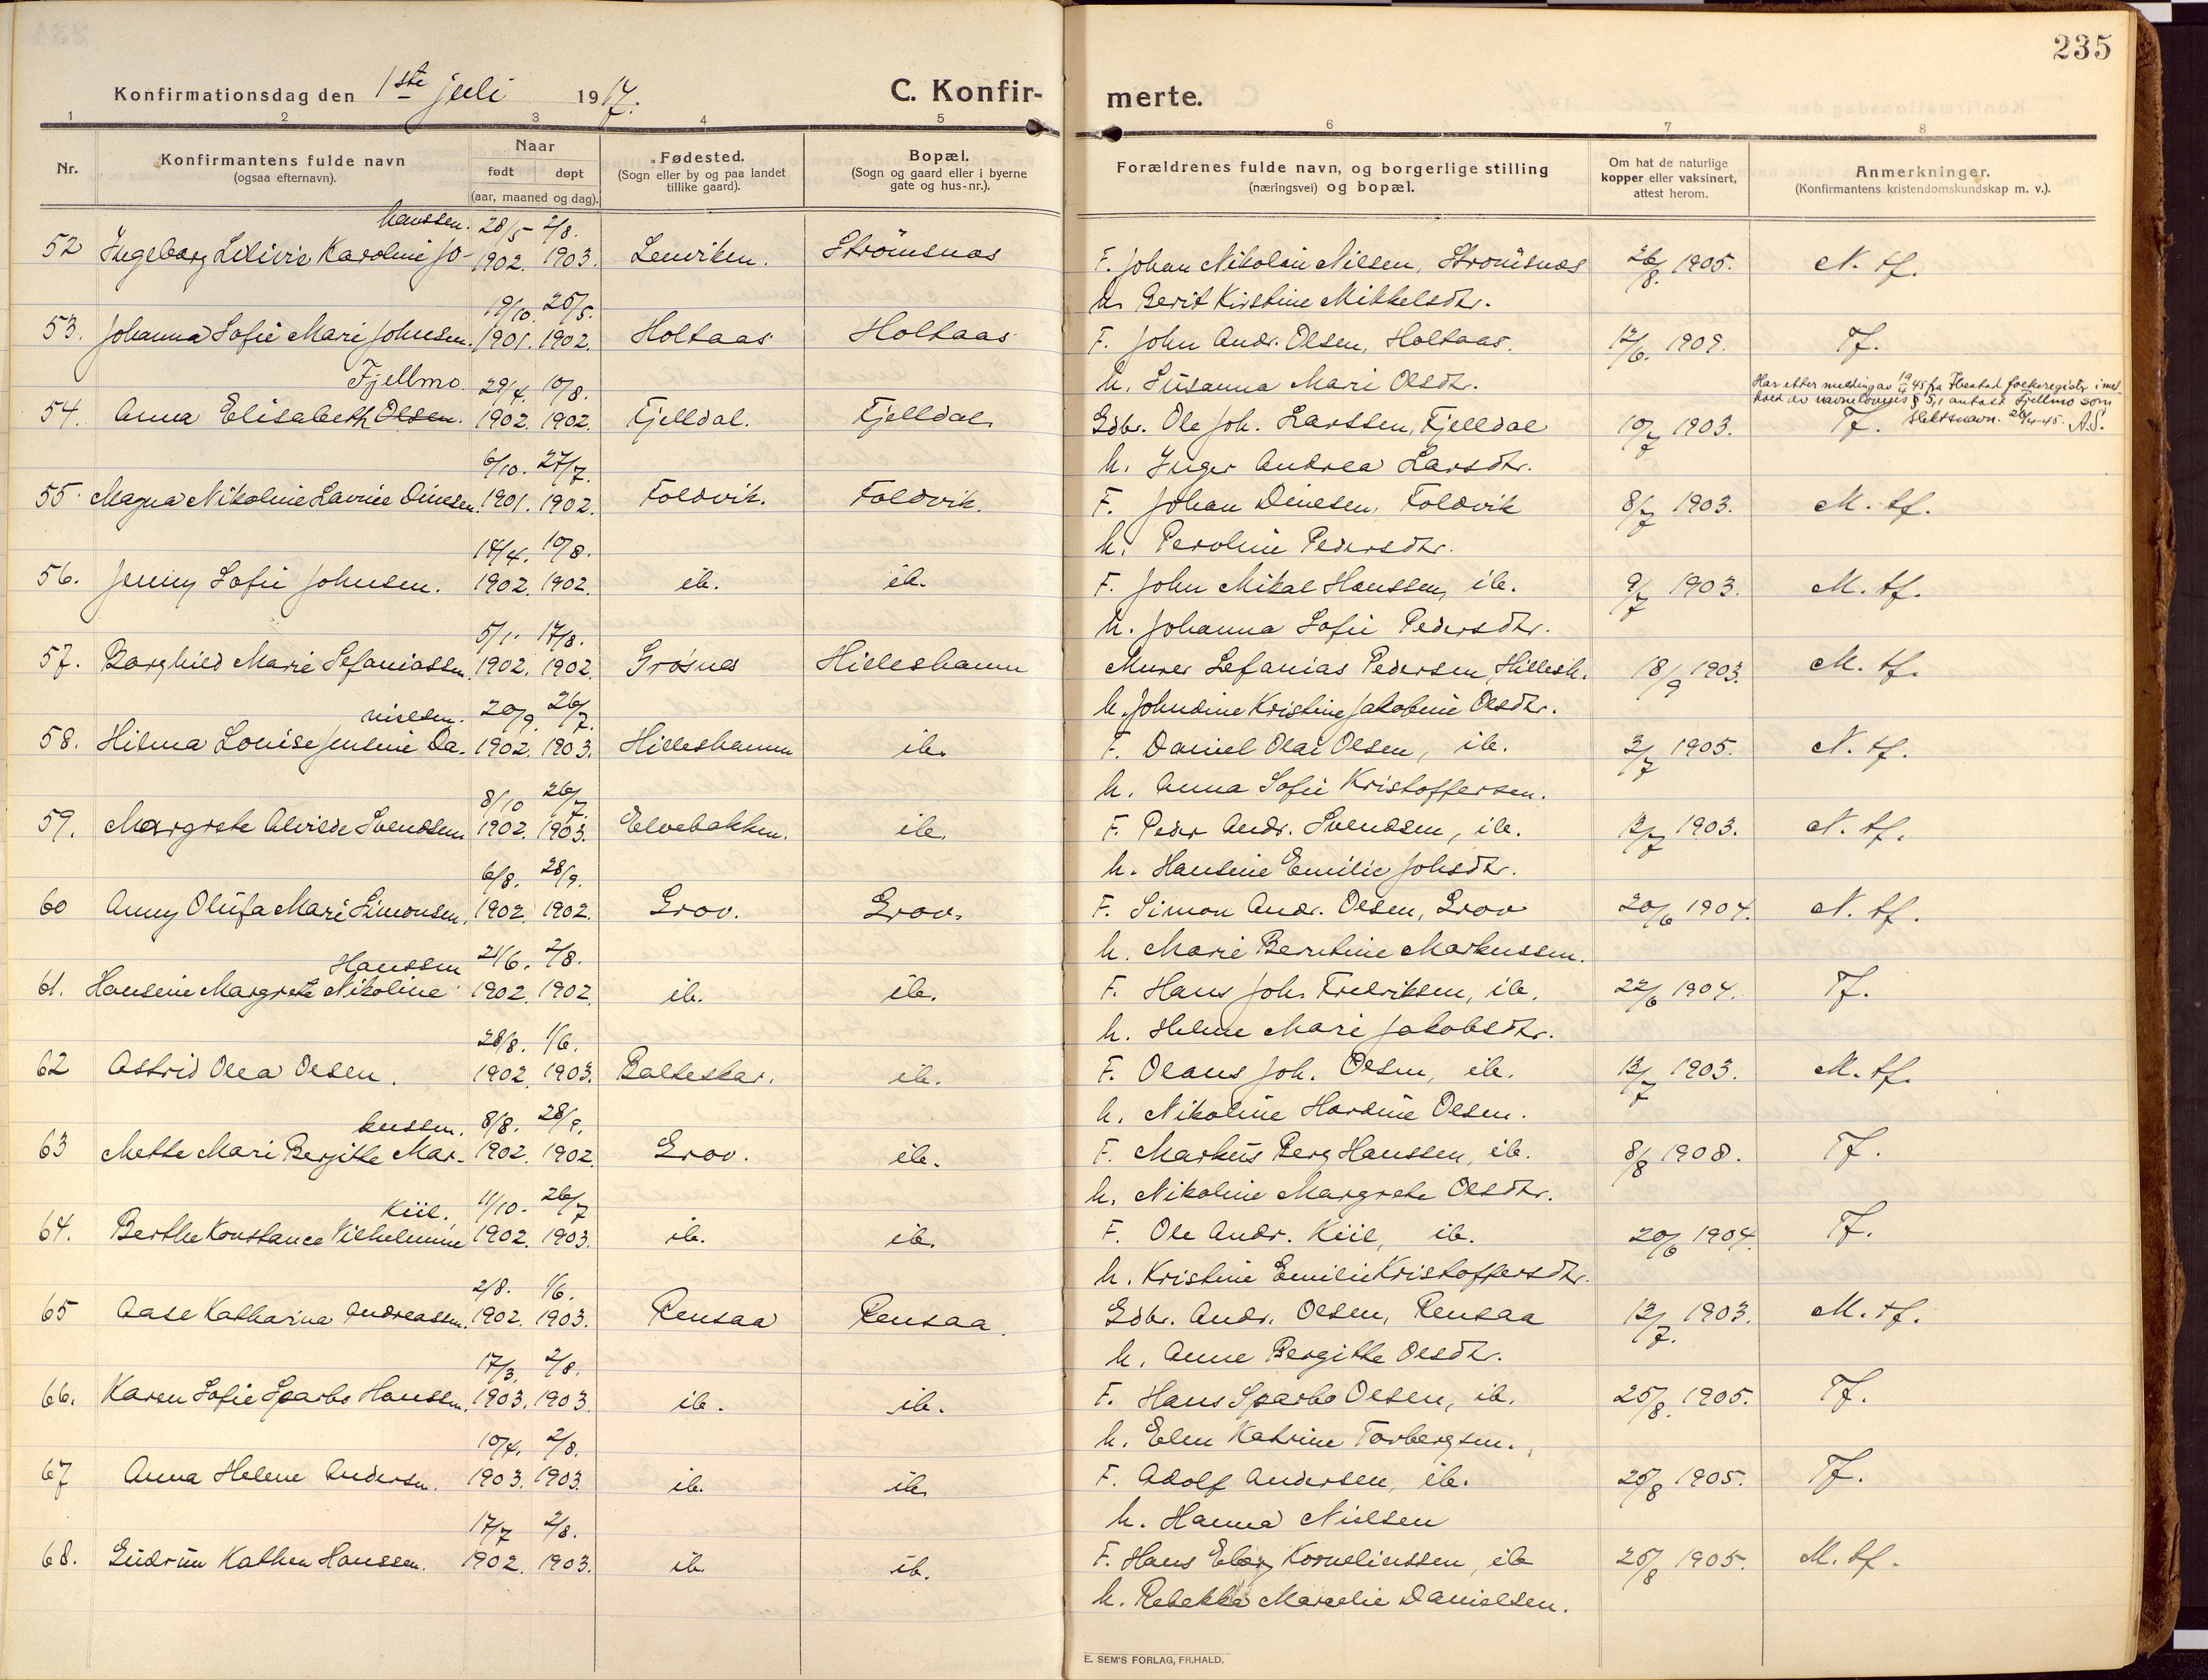 235
Konfirmationsdag den 1ste juli 1917.
C. Konfir- merte.
1 2 3 4 5 6 7 8
Nr.
Konfirmantens fulde navn
(ogsaa efternavn).
Naar
født døpt
(aar, maaned og dag).
Fødested.
(Sogn eller by og paa landet
tillike gaard).
Bopæl.
(Sogn og gaard eller i byerne
gate og hus-nr.).
Forældrenes fulde navn, og borgerlige stilling
(næringsvei) og bopæl.
Om hat de naturlige
kopper eller vaksinert,
attest herom.
Anmerkninger.
(Konfirmantens kristendomskundskap m. v.).
hanssen. 28/5 2/8.
52 Ingeborg Karoline Jo- 1902. 1903. Lenviken. Strömsnæs F. Johan Nikolai Nilsen, Strömsnes 26/8. 1905. N. tf.
19/10. 25/5. h. Berit Kirstine Mikkelsdtr.
53. Johanna Sofie Mari Johnsen. 1901. 1902. Holtaas Holtaas F. John Andr. Olsen, Holtaas. 12/6. 1909. Tf.
Fjellmo. 29/4. 10/8. h. Susanna Mari Olsdtr.
54. Anna Elisabeth Olsen. 1902. 1902. Fjelldal. Fjelldal. Gdbr. Ole Joh. Larssen, Fjelldal 10/7 1903. Tf. slektsnavn. A.S.
6/10. 27/7. h. Inger Andrea Larsdtr.
55. Magna Nikoline Lavine Dinesen. 1901. 1902. Foldvik. Foldvik. F. Johan Dinesen, Foldvik 8/7 1903. M. tf.
18/4. 10/8. h. Peroline Pedersdtr.
56. Jenny Sofie Johnsen. 1902. 1902. ib. ib. F. John Mikal Hanssen, ib. 9/7 1903. M. tf.
5/1. 17/8. h. Johanna Sofie Pedersdtr.
57. Borghild Marie Sefaniassen. 1902. 1902. Grøsnes Hilleshamn Murer Sefanias Pedersen, Hillesh. 18/9 1903. M. tf.
nielsen. 20/9. 26/7. h. Johndine Kristine Jakobine Olsdtr.
58. Hilma Louise Jensine Da- 1902. 1903. Hilleshamn ib. F. Daniel Olai Olsen, ib. 3/7 1905. N. tf.
8/10 26/7. h. Anna Sofie Kristoffersen.
59. Margrete Alvilde Svendsen 1902. 1903. Elvebakken. ib. F. Peder Andr. Svendsen, ib. 12/7 1903. N. tf.
6/8. 28/9. h. Hansine Emilie Johsdtr.
60 Anny Olufa Mari Simonsen. 1902. 1902. Grov. Grov. F. Simon Andr. Olsen, Grov 20/6 1904. N. tf.
Hanssen 21/6. 2/8. h. Marie Berntine Markussen.
61. Hansine Margrete Nikoline 1902. 1902. ib. ib. F. Hans Joh. Fredriksen, ib. 22/6 1904. Tf.
28/8. 1/6. h. Helene Mari Jakobsdtr.
62 Astrid Olea Olsen. 1902. 1903. Balteskar. ib. F. Olaus Joh. Olsen, ib. 12/7 1903. M. tf.
kussen. 8/8. 28/9. h. Nikoline Hardine Olsen.
63 Mette Mari Bergitte Mar- 1902. 1902. Grov. ib. F. Markus Berg Hanssen, ib. 8/8 1908. Tf.
Kiil. 11/10. 26/7 h. Nikoline Margrete Olsdtr.
64. Berthe Konstance Vilhelmine 1902. 1903. ib. ib. F. Ole Andr. Kiil, ib. 20/6 1904. Tf.
2/8. 1/6. h. Kristine Emilie Kristoffersdtr.
65 Aase Katharina Andreassen. 1902. 1903. Rensaa Rensaa. Gdbr. Andr. Olsen, Rensaa 12/7. 1903. M. tf.
17/3. 2/8. h. Anne Bergitte Olsdtr.
66. Karen Sofie Sparbo Hanssen. 1903. 1903. ib. ib. F. Hans Sparbo Olsen, ib. 25/8. 1905. Tf.
10/4. 2/8. h. Elen Katrine Torbergsen.
67 Anna Helene Andersen. 1903. 1903. ib. ib. F. Adolf Andersen, ib. 25/8 1905. Tf.
17/7 2/8. h. Hanna Nielsen
68. Gudrun Kathen Hanssen. 1902. 1903. ib. ib. F. Hans Korneliussen, ib 25/8 1905. M. tf.
h. Rebekka Marcelie Danielsen.
E. SEM'S FORLAG, FR.HALD.